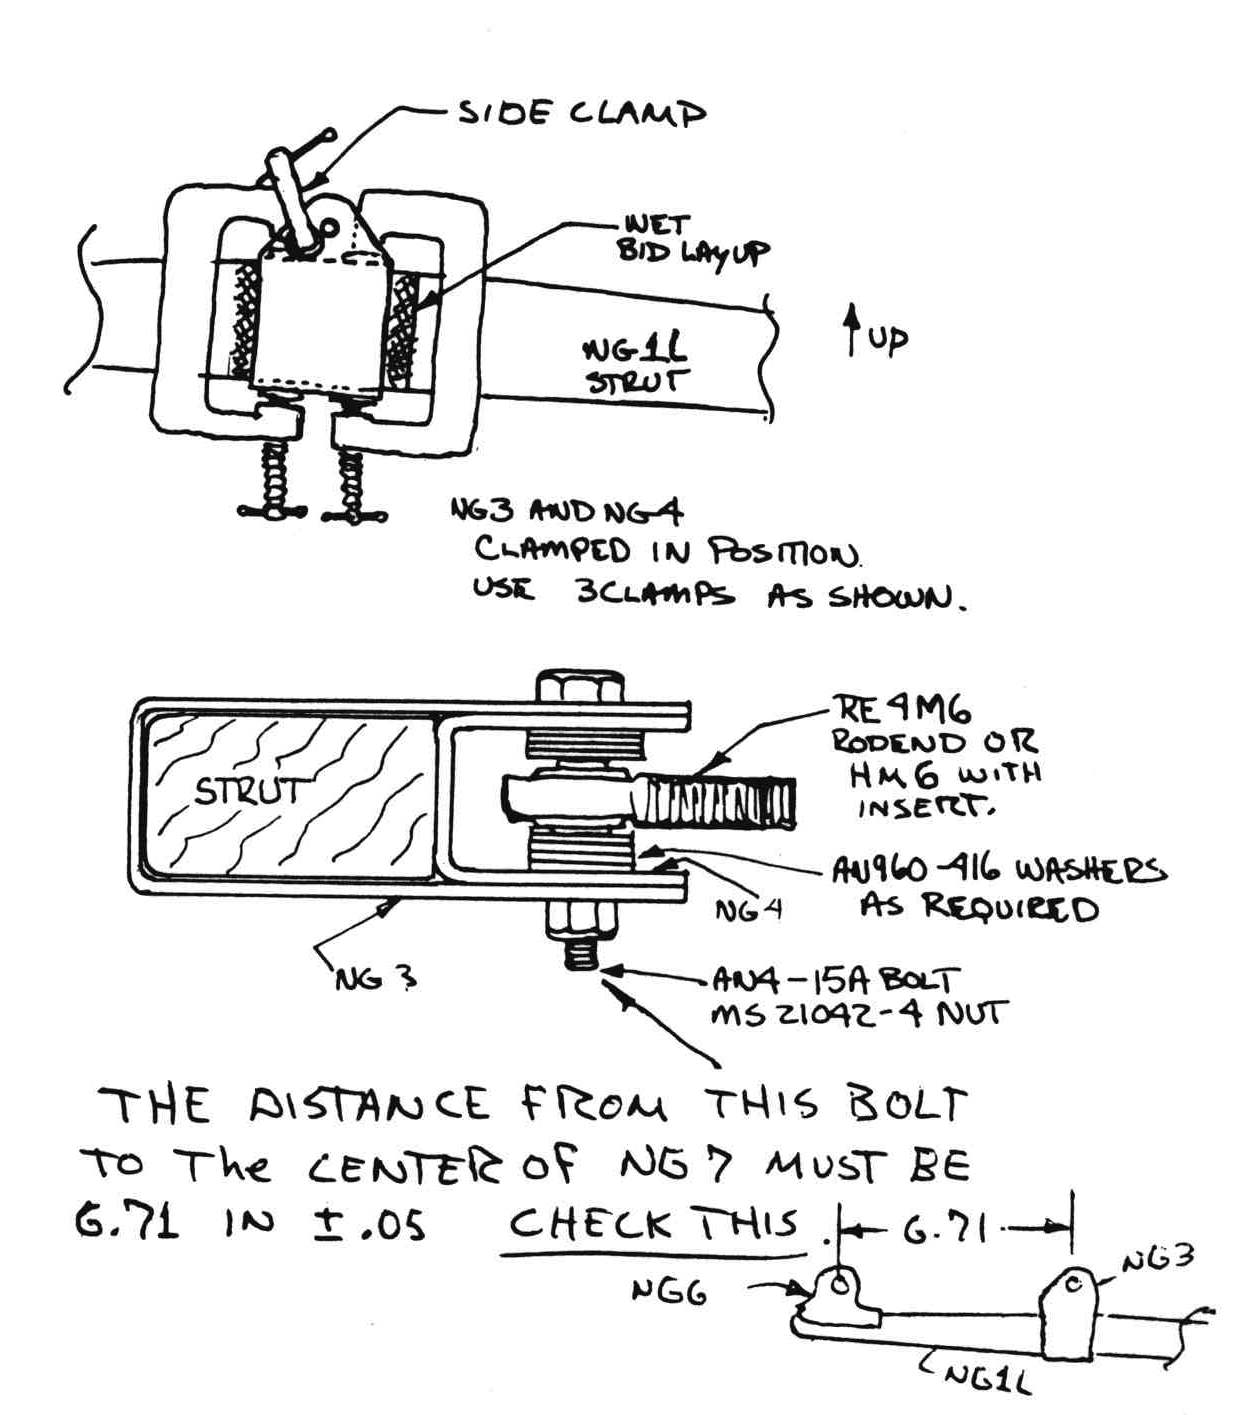 SIDE CLAMP
WET
BID LAYUP
NG1L
STRUT
UP
NG3 AND NG4
CLAMPED IN POSITION.
USE 3 CLAMPS AS SHOWN.
RE4M6
RODEND OR
HM6 WITH
INSERT.
STRUT
AN960-416 WASHERS
AS REQUIRED
NG4
NG 3
AN4-15A BOLT
MS21042-4 NUT
THE DISTANCE FROM THIS BOLT
TO The CENTER OF NG7 MUST BE
6.71 IN ± .05 CHECK THIS.
6.71
NG3
NG6
NG1L